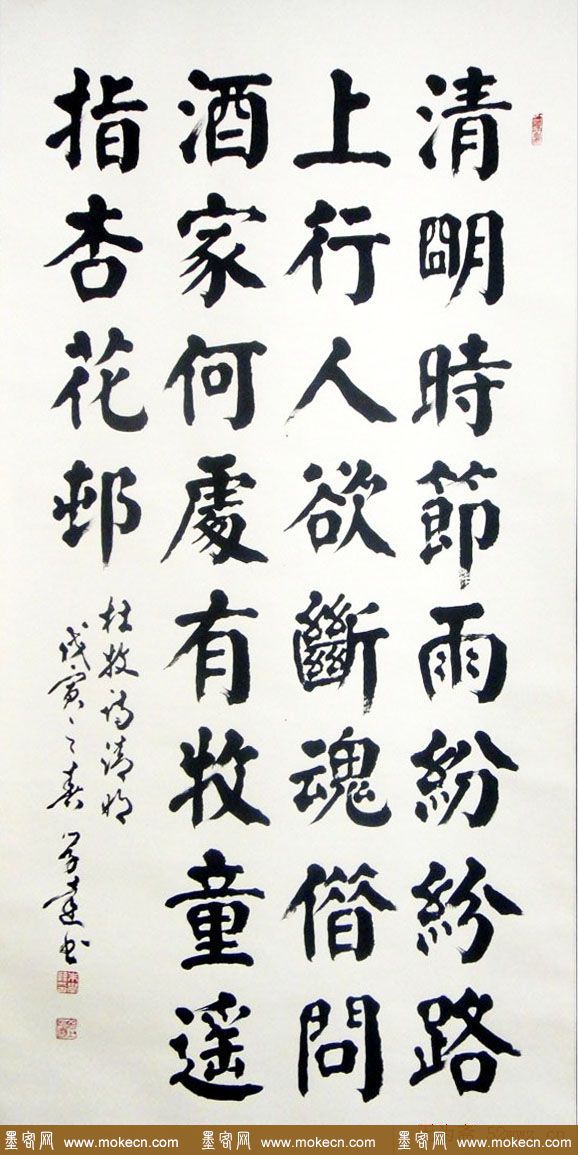 清朙時節雨紛紛路
上行人欲斷魂借問
酒家何處有牧童遙
指杏花邨
杜牧詩清明
戊寅之春
墨客网 www.mokecn.com 墨客网 www.mokecn.com 墨客网 www.mokecn.com